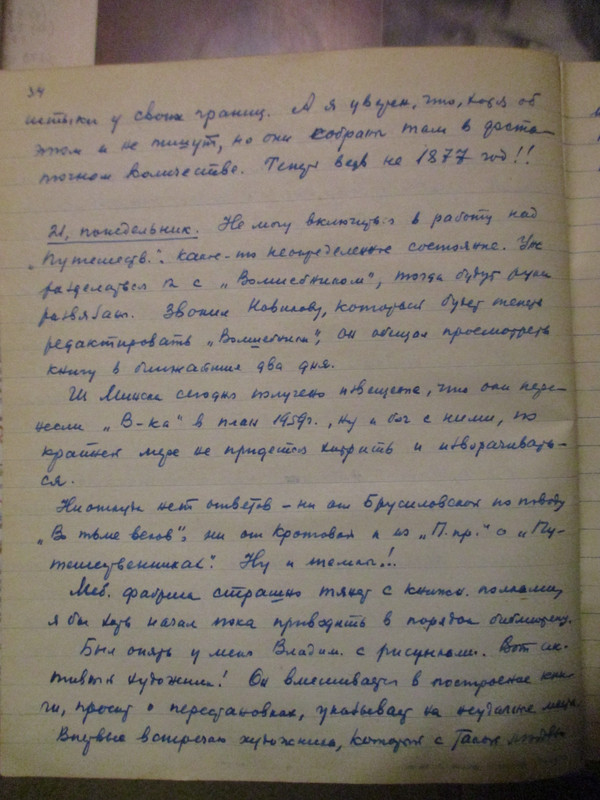 34
штыки у своих границ. А я уверен, что, хотя об
этом и не пишут, но они собраны там в доста-
точном количестве. Теперь ведь не 1877 год!!
21, понедельник. Не могу включиться в работу над
„Путешеств.": какое-то неопределенное состояние. Уж
разделаться с „Волшебником", тогда будут руки
развязаны. Звонил Новикову, который будет теперь
редактировать „Волшебника"; он обещал просмотреть
книгу в ближайшие два дня.
Из Минска сегодня получено извещение, что они пере-
несли „В-ка" в план 1959г., ну и бог с ними, по
крайней мере не придется хитрить и изворачивать-
ся.
Ниоткуда нет ответов – ни от Брусиловской по поводу
„Во тьме веков", ни от Кротовой из „П.пр." о „Пу-
тешественниках". Ну и темпы!..
Меб. фабрика страшно тянет с книжн. полками,
я бы хоть начал пока приводить в порядок библиотеку.
Был опять у меня Владим. с рисунками. Вот ак-
тивный художник! Он вмешивается в построение кни-
ги, просит о перестановках, указывает на неудачные места.
Впервые встречаю художника, который с такой